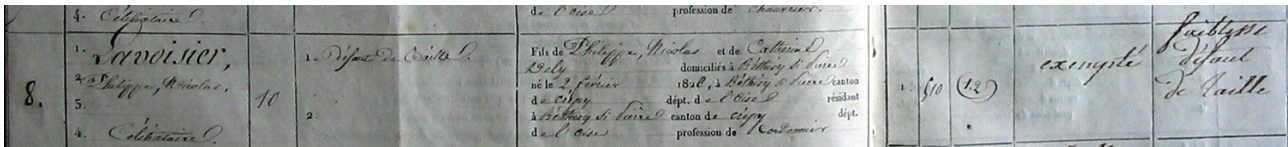 4. Célibataire
de l'Oise profession de Chauvrier.
1. Lavoisier,
2. Philippe, Nicolas.
3.
4. Célibataire
8.
10
1. Défaut de taille
2.
Fils de Philippe, Nicolas et de Catherine
Dely domiciliés à Béthisy St Pierre
né le 2 février 1828, à Béthisy St Pierre canton
de crépy dépt. de l'Oise résidant
à Béthisy St Pierre canton de crépy dépt.
de l'Oise profession de Cordonnier
1. 510 (12)
exempté
faiblesse
défaut
de taille